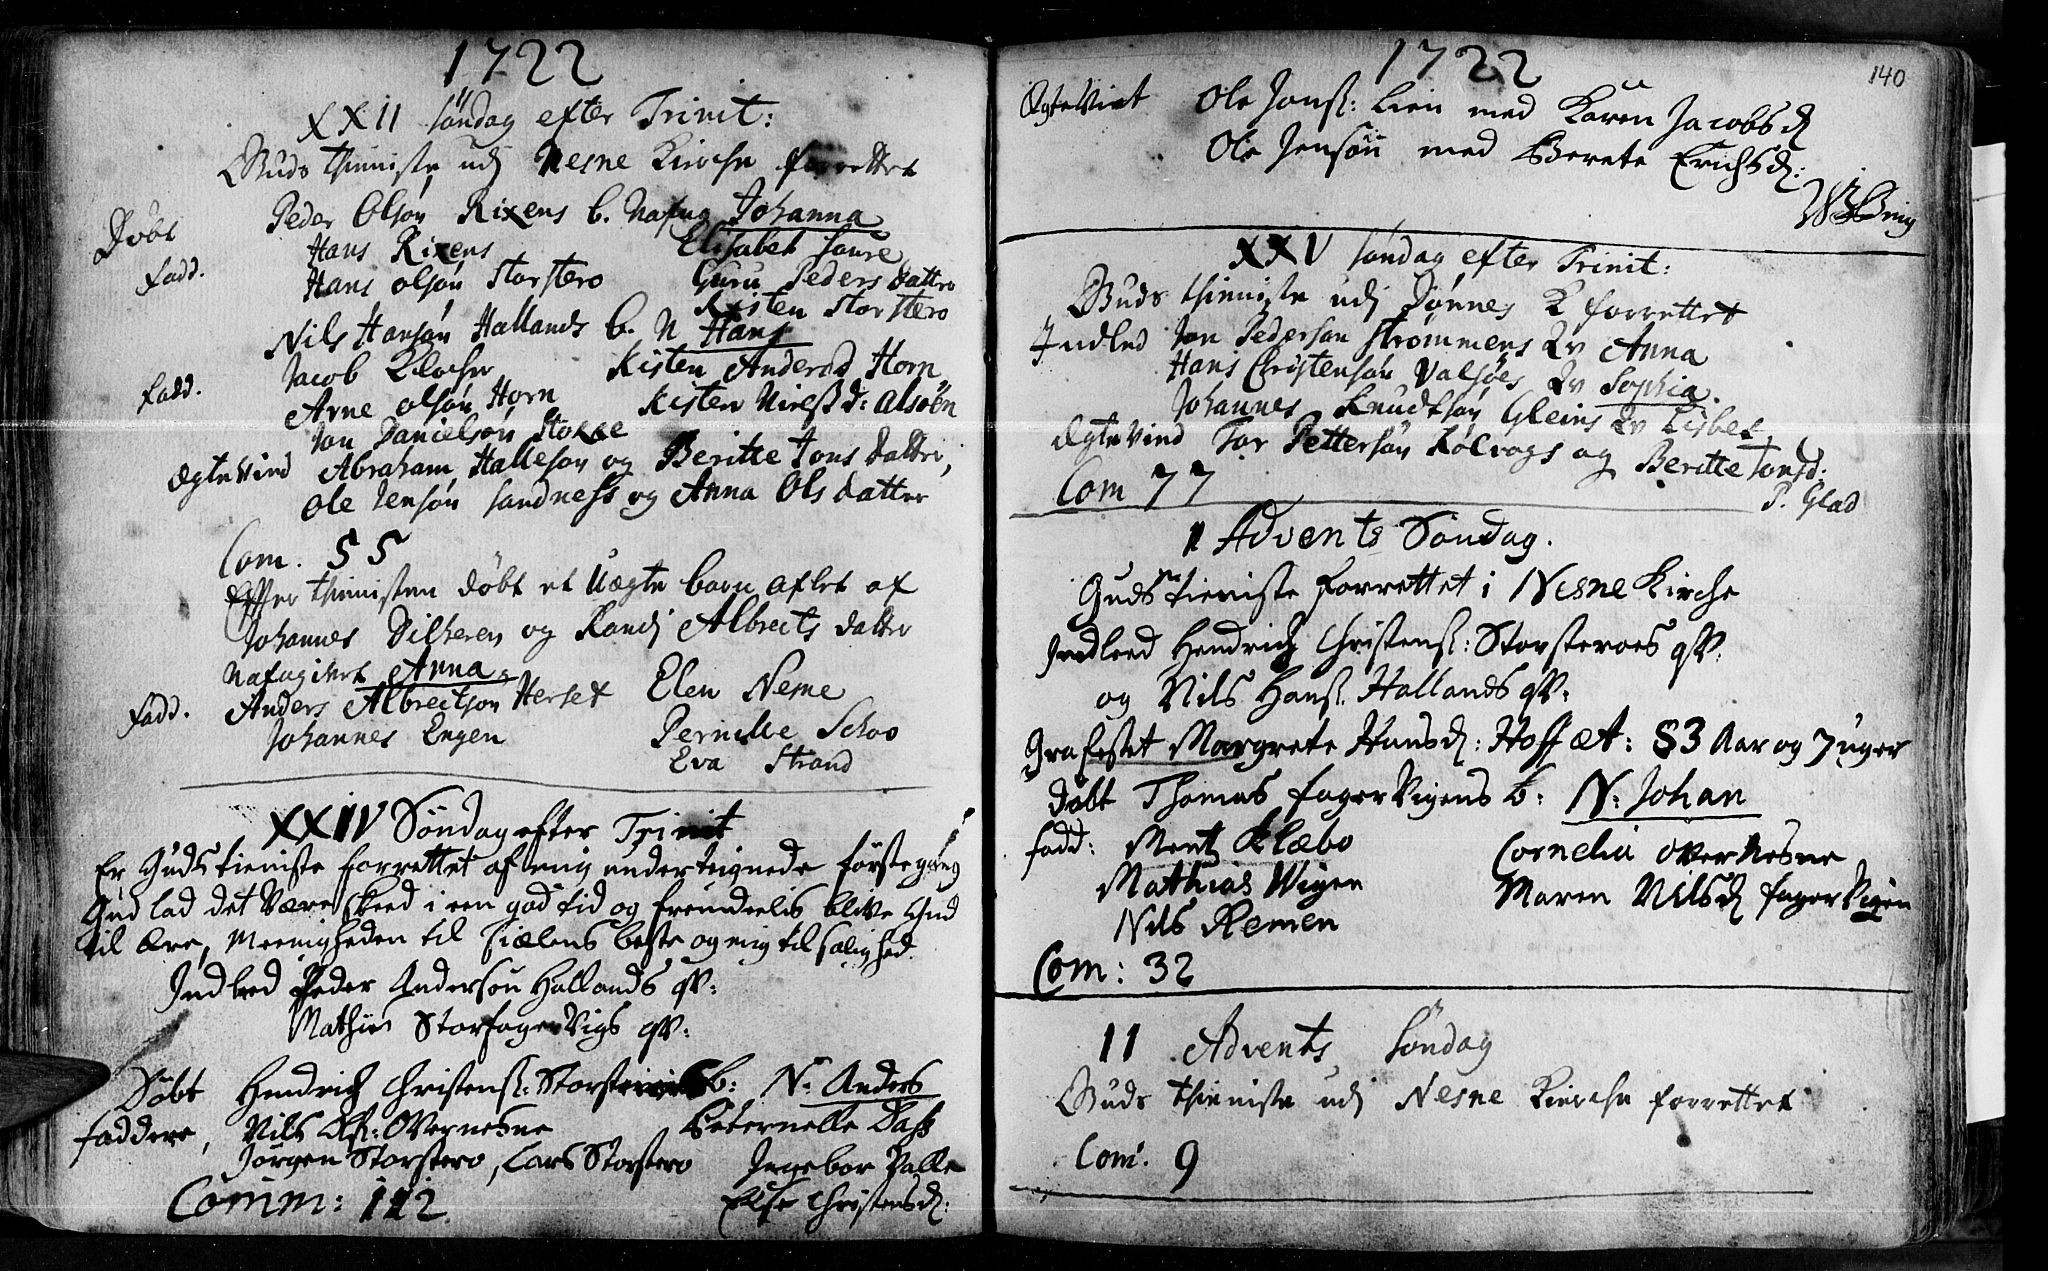 1722
XXII Søndag efter Trinit:
Guds thieniste udj Nesne Kirche forrettet
Døbt Peder Olsøn Rixens b. Nafng Johanna
Fadd. Hans Rixens Elisabet Saure
Hans olsøn Storstero Guru Peders datter
Kisten Storstero
Nils Hansøn Hallands b. N Hans
Fadd. Jacob Klocher Kisten Andersd Horn
Arne olsøn Horn Kisten Nielsd: alsøen
Jon Danielsøn Stokke
Ægtevied Abraham Hallesøn og Beritte Jons datter,
Ole Jensøn Sandness og Anna Ols datter
Com. 55
Effter thienisten døbt et Uægte barn aflet af
Johannes Dilheren og Randj Albreits datter
Nafngivet Anna
Fadd. Anders Albreitsøn Herset Elen Neme
Johannes Engen Pernille Schoo
Eva Strand
XXIV Søndag efter Trinit
Er Guds tieniste forrettet af mig underteignede første gang
Gud lad det være skeed i een god tid og fremdeelis blive Gud
til ære, Meenigheden til siælens beste og mig til salighed.
Indleed Peder Andersøn Hallands qv:
Mathis Storfagervigs qv:
Døbt Hendrich Christens: b: N: Anders
faddere, Nils Ols: Overnesne Peternelle Dass
Jørgen Storstero, Lars Storstero Ingebor Halle
Else Christensd:
Comm: 112
1722
140
Ægteviet Ole Jons: Lien med Karen Jacobsd
Ole Jensøn med Berete Erichsd:
XXV Søndag efter Trinit:
Guds thieniste udj Dønnes K forrettet
Indled Jon Pedersøn Strømmens Qv Anna
Hans Christensøn Valsøes Qv Sophia.
Johannes Knudtsøn Gleins Qv Lisbet
Ægteviid Tor Pettersøn Kolvogs og Beritte Jonsd:
Com 77 P. Glad
1 Advents Søndag.
Guds tieniste forrettet i Nesne Kirche
Indleed Hendrich Christens: Storsteroes qv:
og Nils Hans: Hallands qv:
Grafestet Margrete Hansd: Hoff æt: 83 Aar og 7 uger
døbt Thomas fagerVigens b: N: Johan
fadd: Mentz Klæbo Cornelia overnesne
Mathias Wigen Maren Nilsd fagerVigen
Nils Remen
Com: 32
11 Advents Søndag
Guds thieniste udj Nesne Kirche forrettet
Com. 9